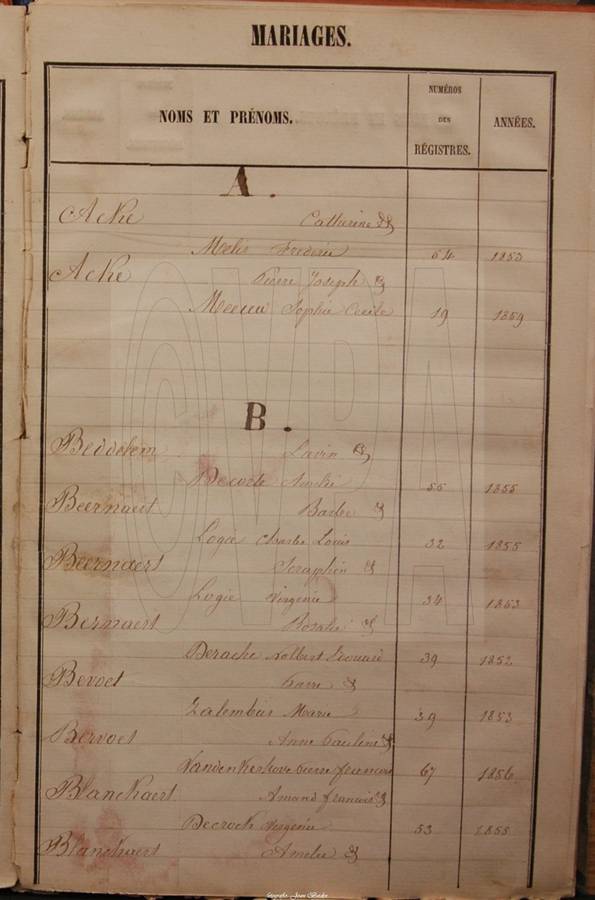 MARIAGES.
NOMS ET PRÉNOMS.
NUMÉROS
DES
RÉGISTRES.
ANNÉES.
A.
Acke Catherine &
Melis Frederic 54 1853
Acke Pierre Joseph &
Sophie Cecile 19 1859
B.
Beddelem &
Decorte 55 1855
Beernaert Barbe &
Logie Charles Louis 32 1855
Beernaert Seraphin &
Logie Virginie 34 1853
Bernaert Rosalie &
Derache 39 1852
Bevoet &
Marie 39 1853
Bervoet Anne Pauline &
Vandenkerkove Pierre Francois 67 1856
Blanckaert Amand Francois &
Decrock Virginie 53 1855
Blanckaert Amelie &
CMPA